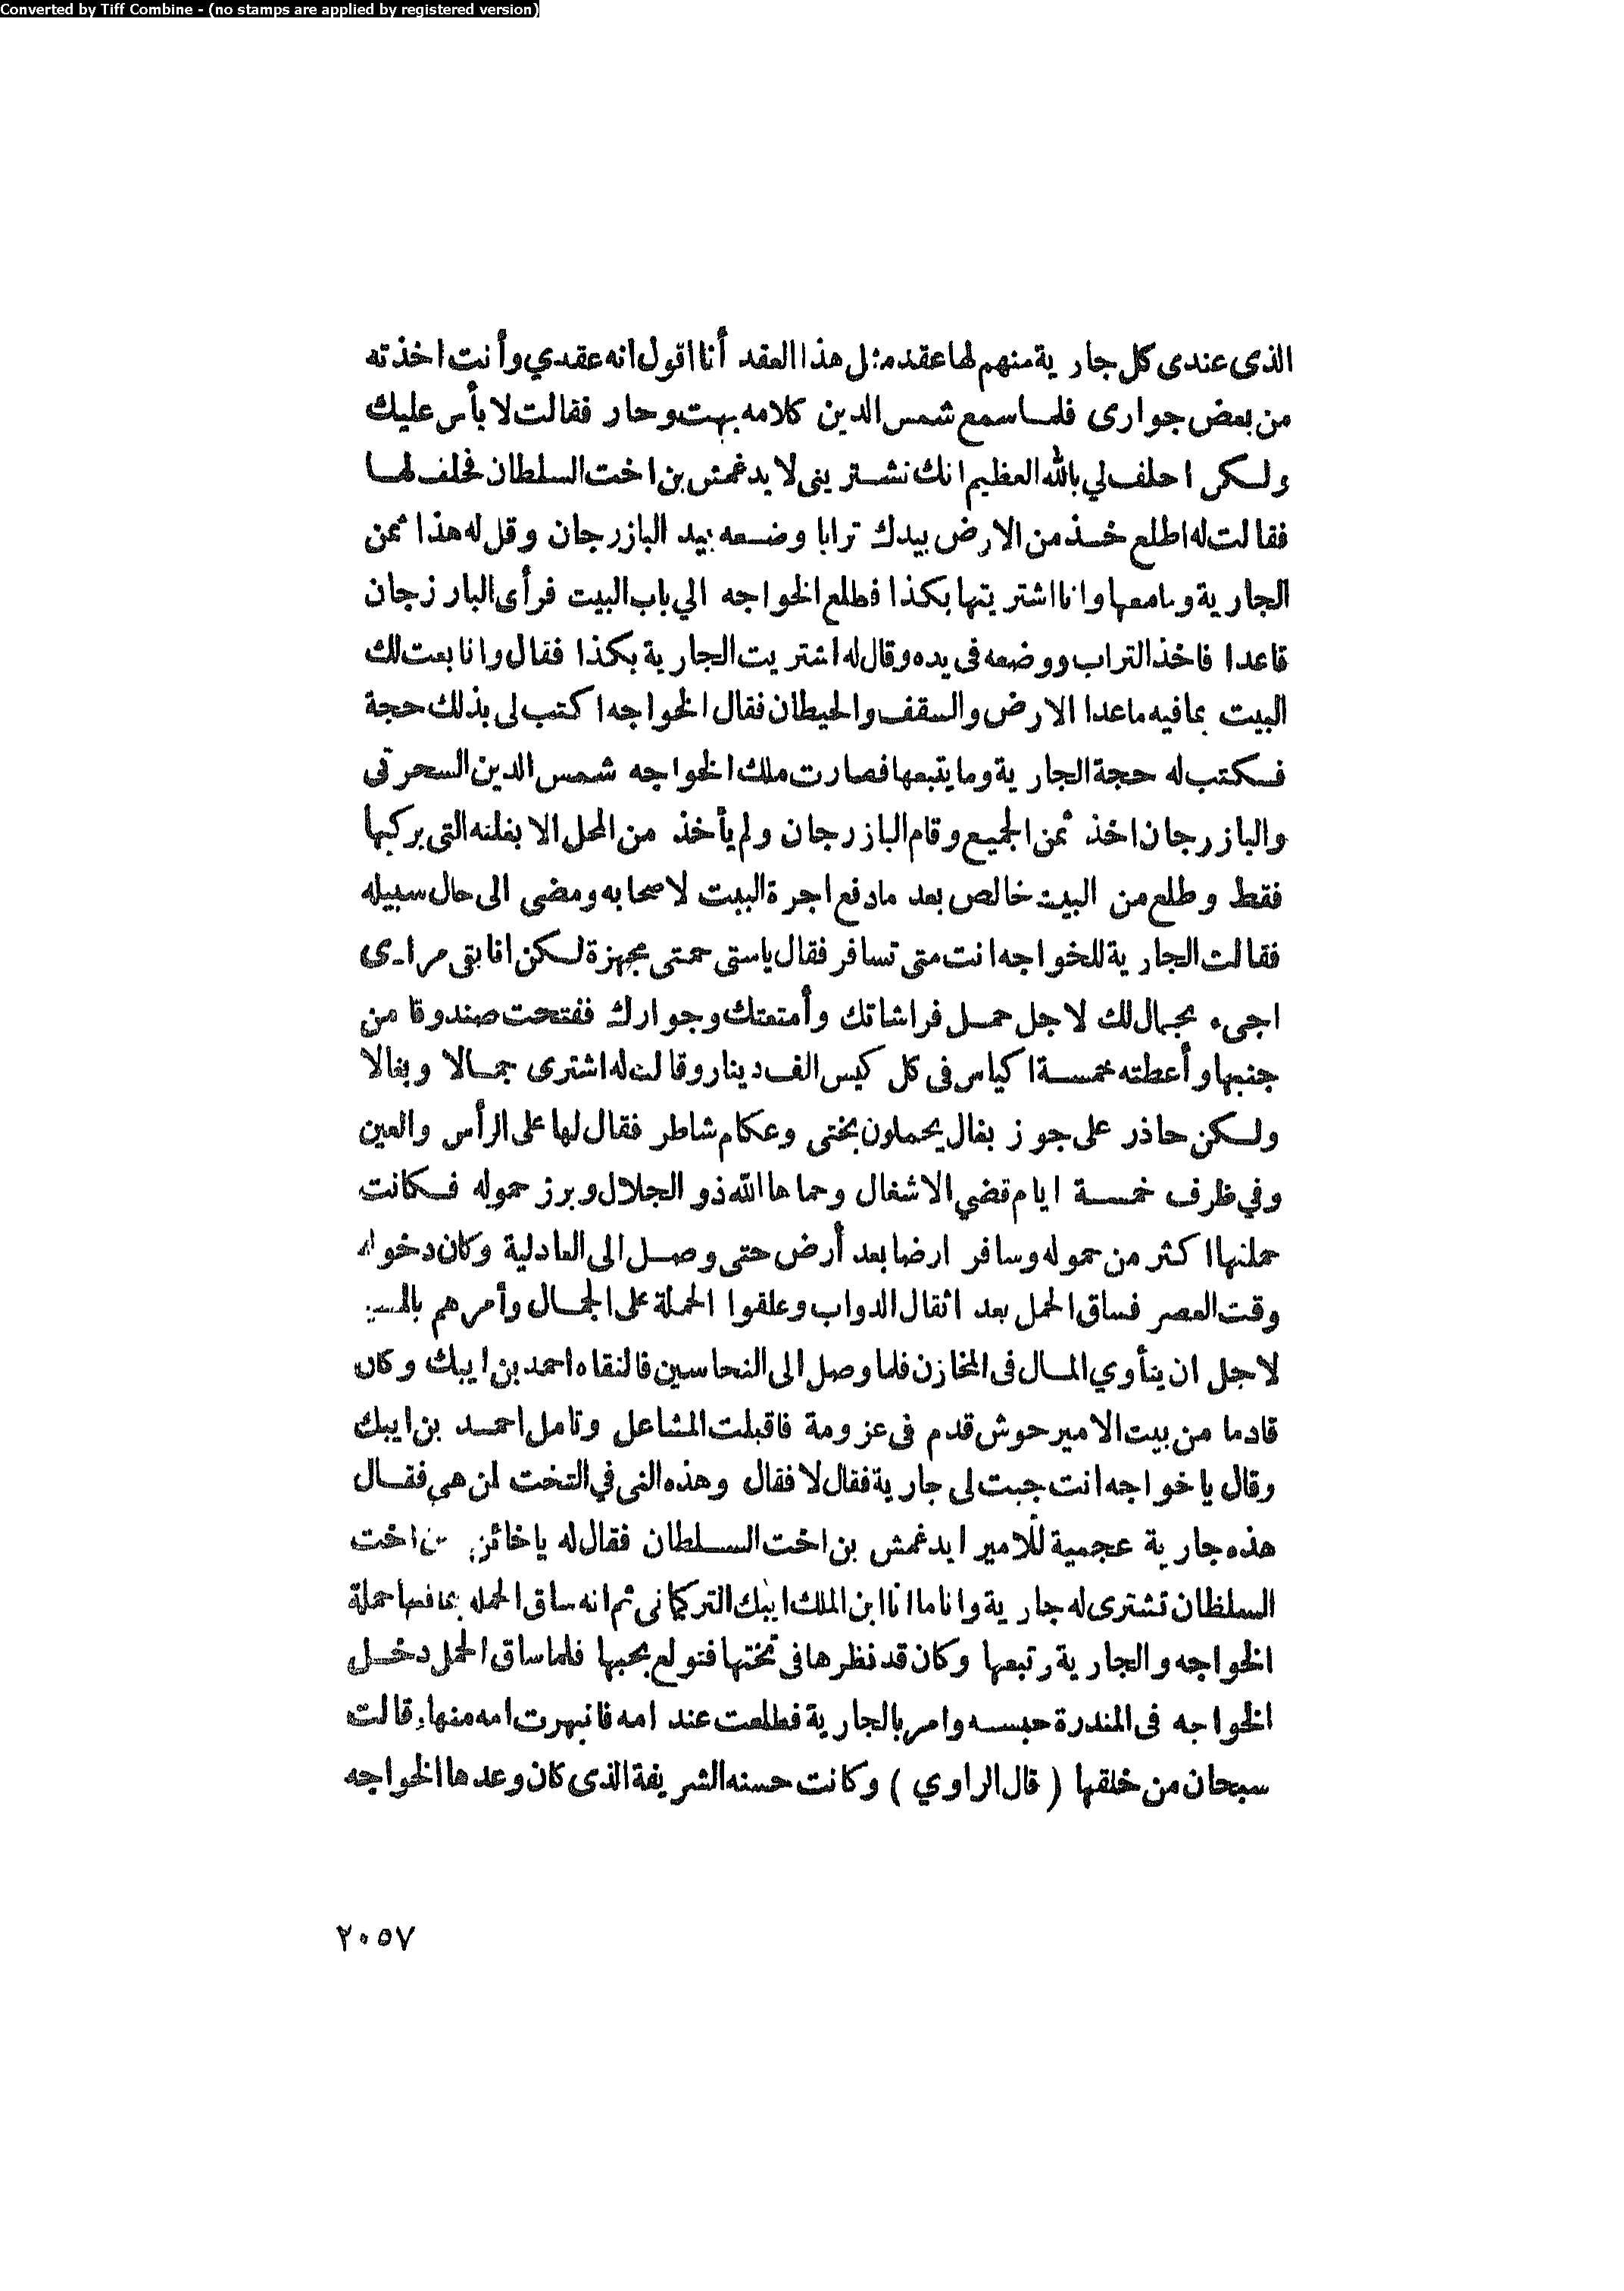 Converted by Tiff Combine - (no stamps are applied by registered version)
الذى عندى كل جارية منهم لها عقد مثل هذا العقد أنا اقول انه عقدي وأنت اخذته
من بعض جوارى فلما سمع شمس الدين كلامه بهت وحار فقالت لا بأس عليك
ولكن احلف لي بالله العظيم انك تشتريني لايدغمش بن اخت السلطان فحلف لها
فقالت له اطلع خذ من الارض بيدك ترابا وضعه بيد البازرجان وقل له هذا ثمن
الجارية وما معها وانا اشتريتها بكذا فطلع الخواجه الي باب البيت فرأى البازرجان
قاعدا فاخذ التراب ووضعه فى يده وقال له اشتريت الجارية بكذا فقال وانا بعت لك
البيت بما فيه ما عدا الارض والسقف والحيطان فقال الخواجه اكتب لى بذلك حجة
فكتب له حجة الجارية وما يتبعها فصارت ملك الخواجه شمس الدين السحرتى
والبازرجان اخذ ثمن الجميع وقام البازرجان ولم يأخذ من المحل الا بغلته التى يركبها
فقط وطلع من البيت خالص بعد ما دفع اجرة البيت لاصحابه ومضى الى حال سبيله
فقالت الجارية للخواجه انت متى تسافر فقال ياستى حمتى مجهزة لكن انا بقى مرادى
اجىء بجمال لك لاجل حمل فراشاتك وأمتعتك وجوارك ففتحت صندوقا من
جنبها وأعطته خمسة اكياس فى كل كيس الف دينار وقالت له اشترى جمالا وبغالا
ولكن حاذر على جوز بغال يحملون بختى وعكام شاطر فقال لها على الرأس والعين
وفي ظرف خمسة ايام قضي الاشغال وحماها الله ذو الجلال وبرز حموله فكانت
حملتها اكثر من حموله وسافر ارضا بعد أرض حتى وصل الى العادلية وكان دخوله
وقت العصر فساق الحمل بعد اثقال الدواب وعلقوا الحملة على الجمال وأمرهم
لاجل ان يتأوي المال فى المخازن فلما وصل الى النحاسين فالتقاه احمد بن ايبك وكان
قادما من بيت الامير حوش قدم فى عزومة فاقبلت المشاعل وتامل احمد بن ايبك
وقال ياخواجه انت جبت لى جارية فقال لا فقال وهذه التى في التخت لمن هي فقال
هذه جارية عجمية للامير ايدغمش بن اخت السلطان فقال له ياخائن بن اخت
السلطان تشترى له جارية وانا ما انا ابن الملك ايبك التركمانى ثم انه ساق الحمله بما فيها حملة
الخواجه والجارية وتبعها وكان قد نظرها فى تختها فتولع بحبها فلما ساق الحمل دخل
الخواجه فى المندرة حبسه وامر بالجارية فطلعت عند امه فانبهرت امه منها وقالت
سبحان من خلقها ( قال الراوي ) وكانت حسنه الشريفة الذى كان وعدها الخواجه
٢٠٥٧